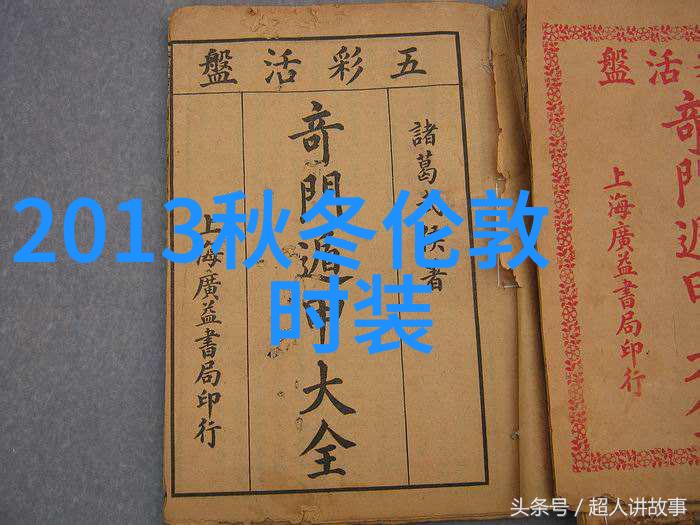 五彩活盤
諸葛武侯著
奇門遁甲大全
上海廣益書局印行
2013秋冬伦敦
时装
活盤
奇門遁甲
上海廣益書局印行
头条号 / 超人讲故事